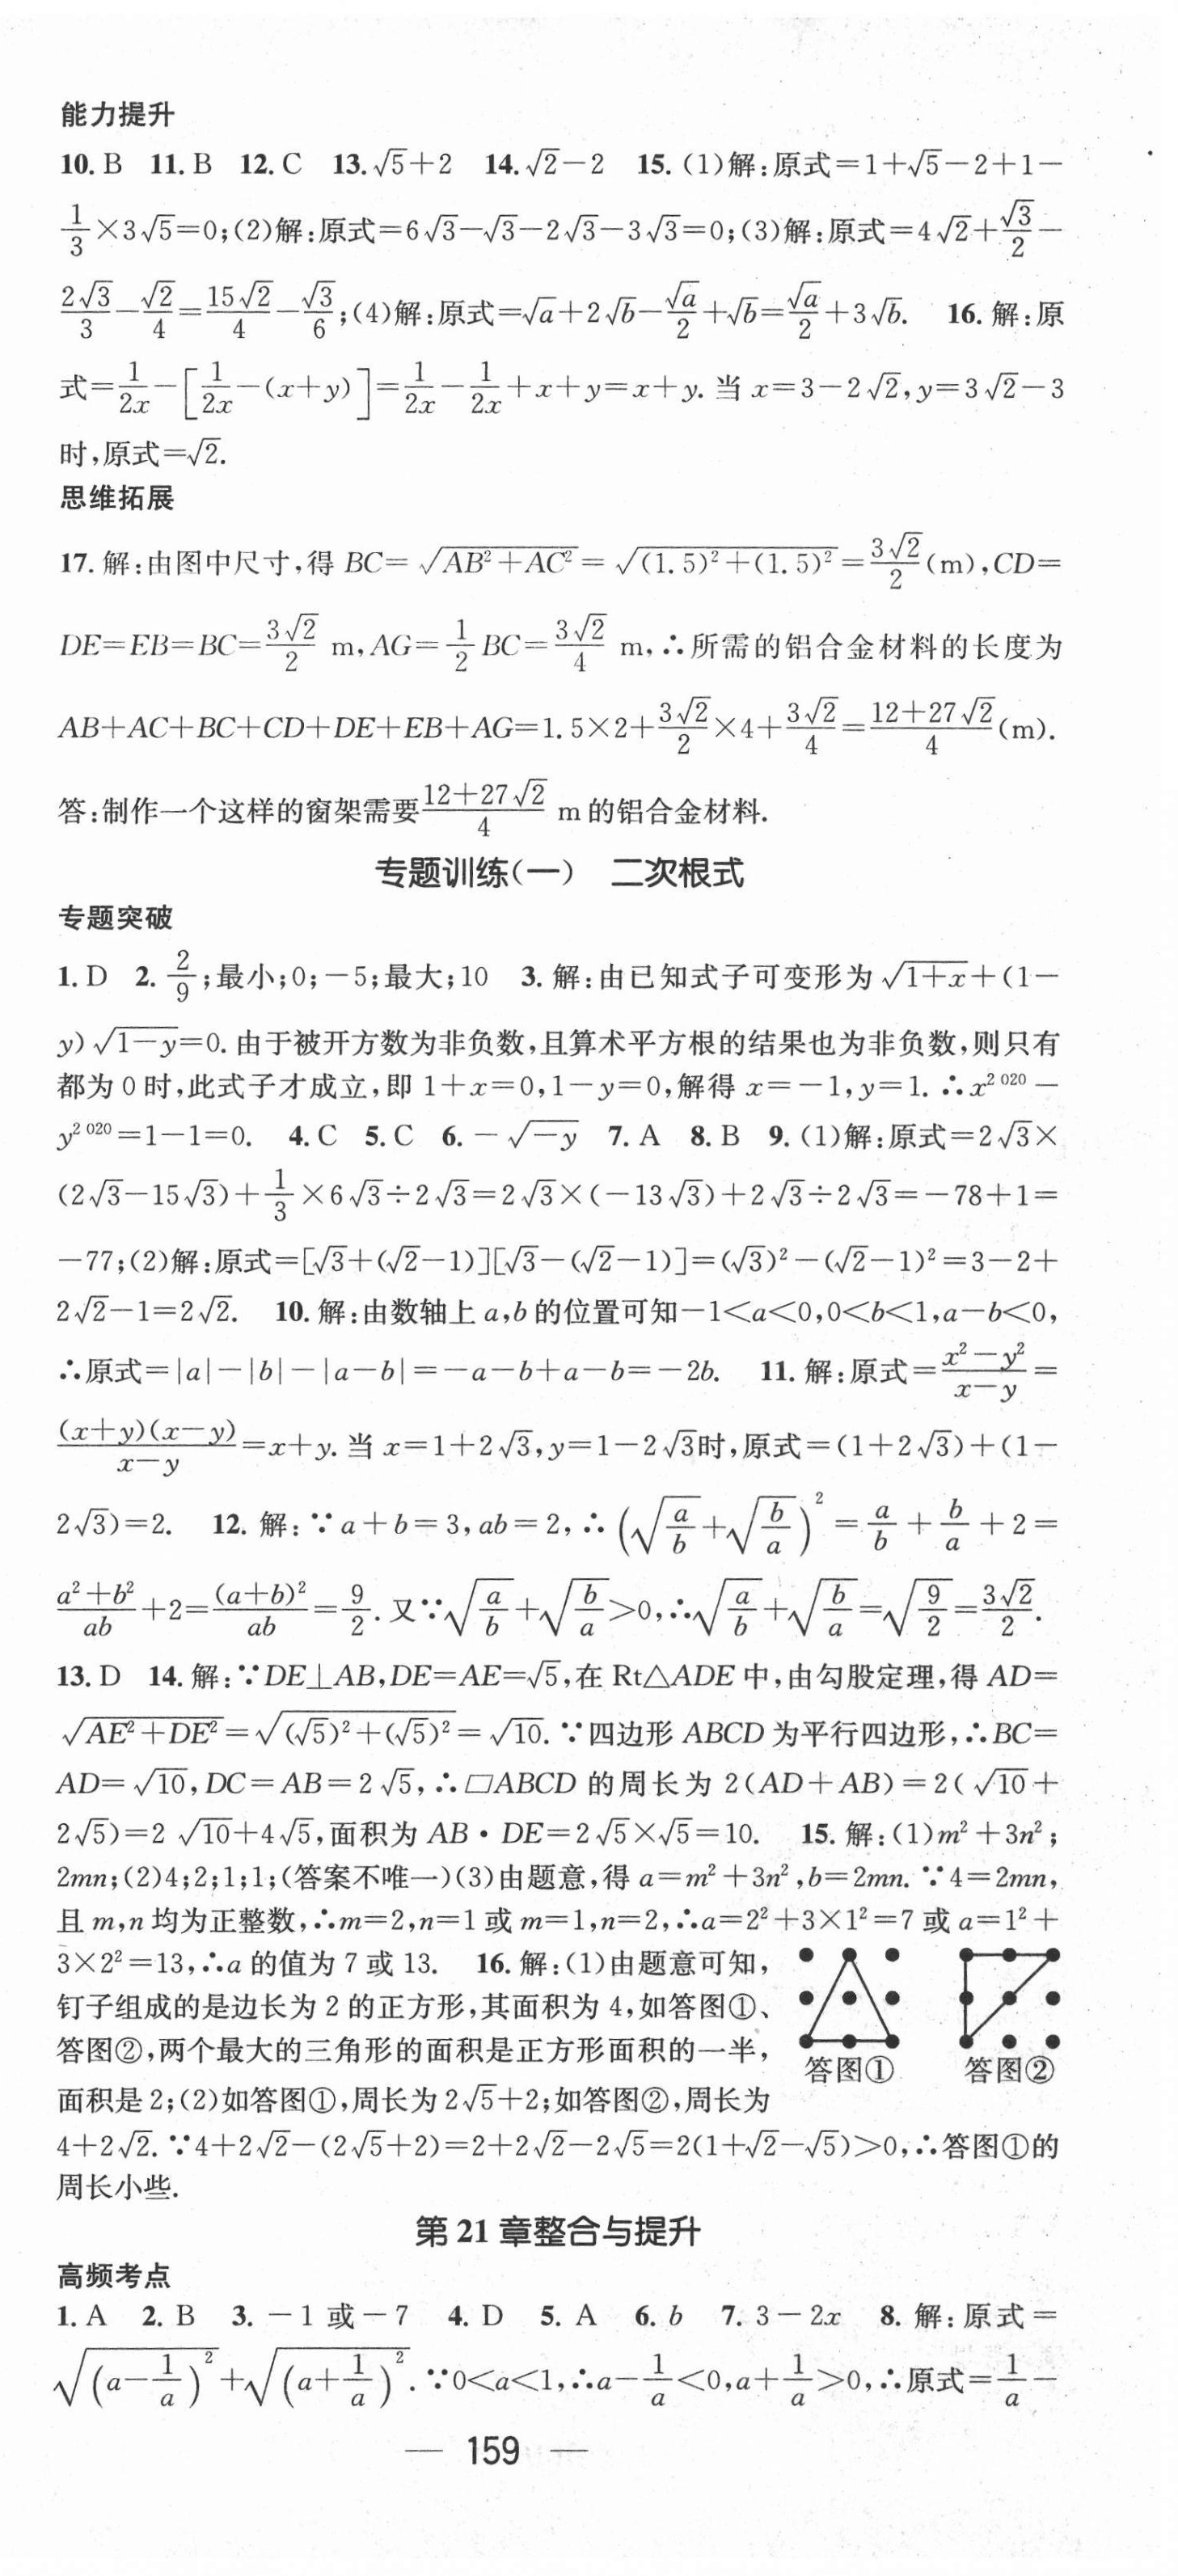 能力提升
10. B 11. B 12. C 13. √5+2 14. √2−2 15. (1)解:原式=1+√5−2+1−
1/3×3√5=0;(2)解:原式=6√3−√3−2√3−3√3=0;(3)解:原式=4√2+√3/2−
2√3/3−√2/4=15√2/4−√3/6;(4)解:原式=√a+2√b−√a/2+√b=√a/2+3√b. 16. 解:原
式=1/2x−[1/2x−(x+y)]=1/2x−1/2x+x+y=x+y. 当 x=3−2√2,y=3√2−3
时,原式=√2.
思维拓展
17. 解:由图中尺寸,得 BC=√(AB²+AC²)=√((1.5)²+(1.5)²)=3√2/2(m),CD=
DE=EB=BC=3√2/2 m,AG=1/2BC=3√2/4 m,∴所需的铝合金材料的长度为
AB+AC+BC+CD+DE+EB+AG=1.5×2+3√2/2×4+3√2/4=(12+27√2)/4(m).
答:制作一个这样的窗架需要(12+27√2)/4 m的铝合金材料.
专题训练(一) 二次根式
专题突破
1. D 2. 2/9;最小;0;−5;最大;10 3. 解:由已知式子可变形为√(1+x)+(1−
y)√(1−y)=0. 由于被开方数为非负数,且算术平方根的结果也为非负数,则只有
都为0时,此式子才成立,即1+x=0,1−y=0,解得 x=−1,y=1. ∴x²⁰²⁰−
y²⁰²⁰=1−1=0. 4. C 5. C 6. −√(−y) 7. A 8. B 9. (1)解:原式=2√3×
(2√3−15√3)+1/3×6√3÷2√3=2√3×(−13√3)+2√3÷2√3=−78+1=
−77;(2)解:原式=[√3+(√2−1)][√3−(√2−1)]=(√3)²−(√2−1)²=3−2+
2√2−1=2√2. 10. 解:由数轴上a,b的位置可知−1<a<0,0<b<1,a−b<0,
∴原式=|a|−|b|−|a−b|=−a−b+a−b=−2b. 11. 解:原式=(x²−y²)/(x−y)=
(x+y)(x−y)/(x−y)=x+y. 当 x=1+2√3,y=1−2√3时,原式=(1+2√3)+(1−
2√3)=2. 12. 解:∵a+b=3,ab=2,∴(√(a/b)+√(b/a))²=a/b+b/a+2=
(a²+b²)/ab+2=(a+b)²/ab=9/2. 又∵√(a/b)+√(b/a)>0,∴√(a/b)+√(b/a)=√(9/2)=3√2/2.
13. D 14. 解:∵DE⊥AB,DE=AE=√5,在Rt△ADE中,由勾股定理,得AD=
√(AE²+DE²)=√((√5)²+(√5)²)=√10. ∵四边形ABCD为平行四边形,∴BC=
AD=√10,DC=AB=2√5,∴▱ABCD的周长为2(AD+AB)=2(√10+
2√5)=2√10+4√5,面积为AB·DE=2√5×√5=10. 15. 解:(1)m²+3n²;
2mn;(2)4;2;1;1;(答案不唯一)(3)由题意,得a=m²+3n²,b=2mn. ∵4=2mn,
且m,n均为正整数,∴m=2,n=1或m=1,n=2,∴a=2²+3×1²=7或a=1²+
3×2²=13,∴a的值为7或13. 16. 解:(1)由题意可知,
钉子组成的是边长为2的正方形,其面积为4,如答图①、
答图②,两个最大的三角形的面积是正方形面积的一半,
答图① 答图②
面积是2;(2)如答图①,周长为2√5+2;如答图②,周长为
4+2√2. ∵4+2√2−(2√5+2)=2+2√2−2√5=2(1+√2−√5)>0,∴答图①的
周长小些.
第21章整合与提升
高频考点
1. A 2. B 3. −1或−7 4. D 5. A 6. b 7. 3−2x 8. 解:原式=
√((a−1/a)²)+√((a+1/a)²). ∵0<a<1,∴a−1/a<0,a+1/a>0,∴原式=1/a−
— 159 —